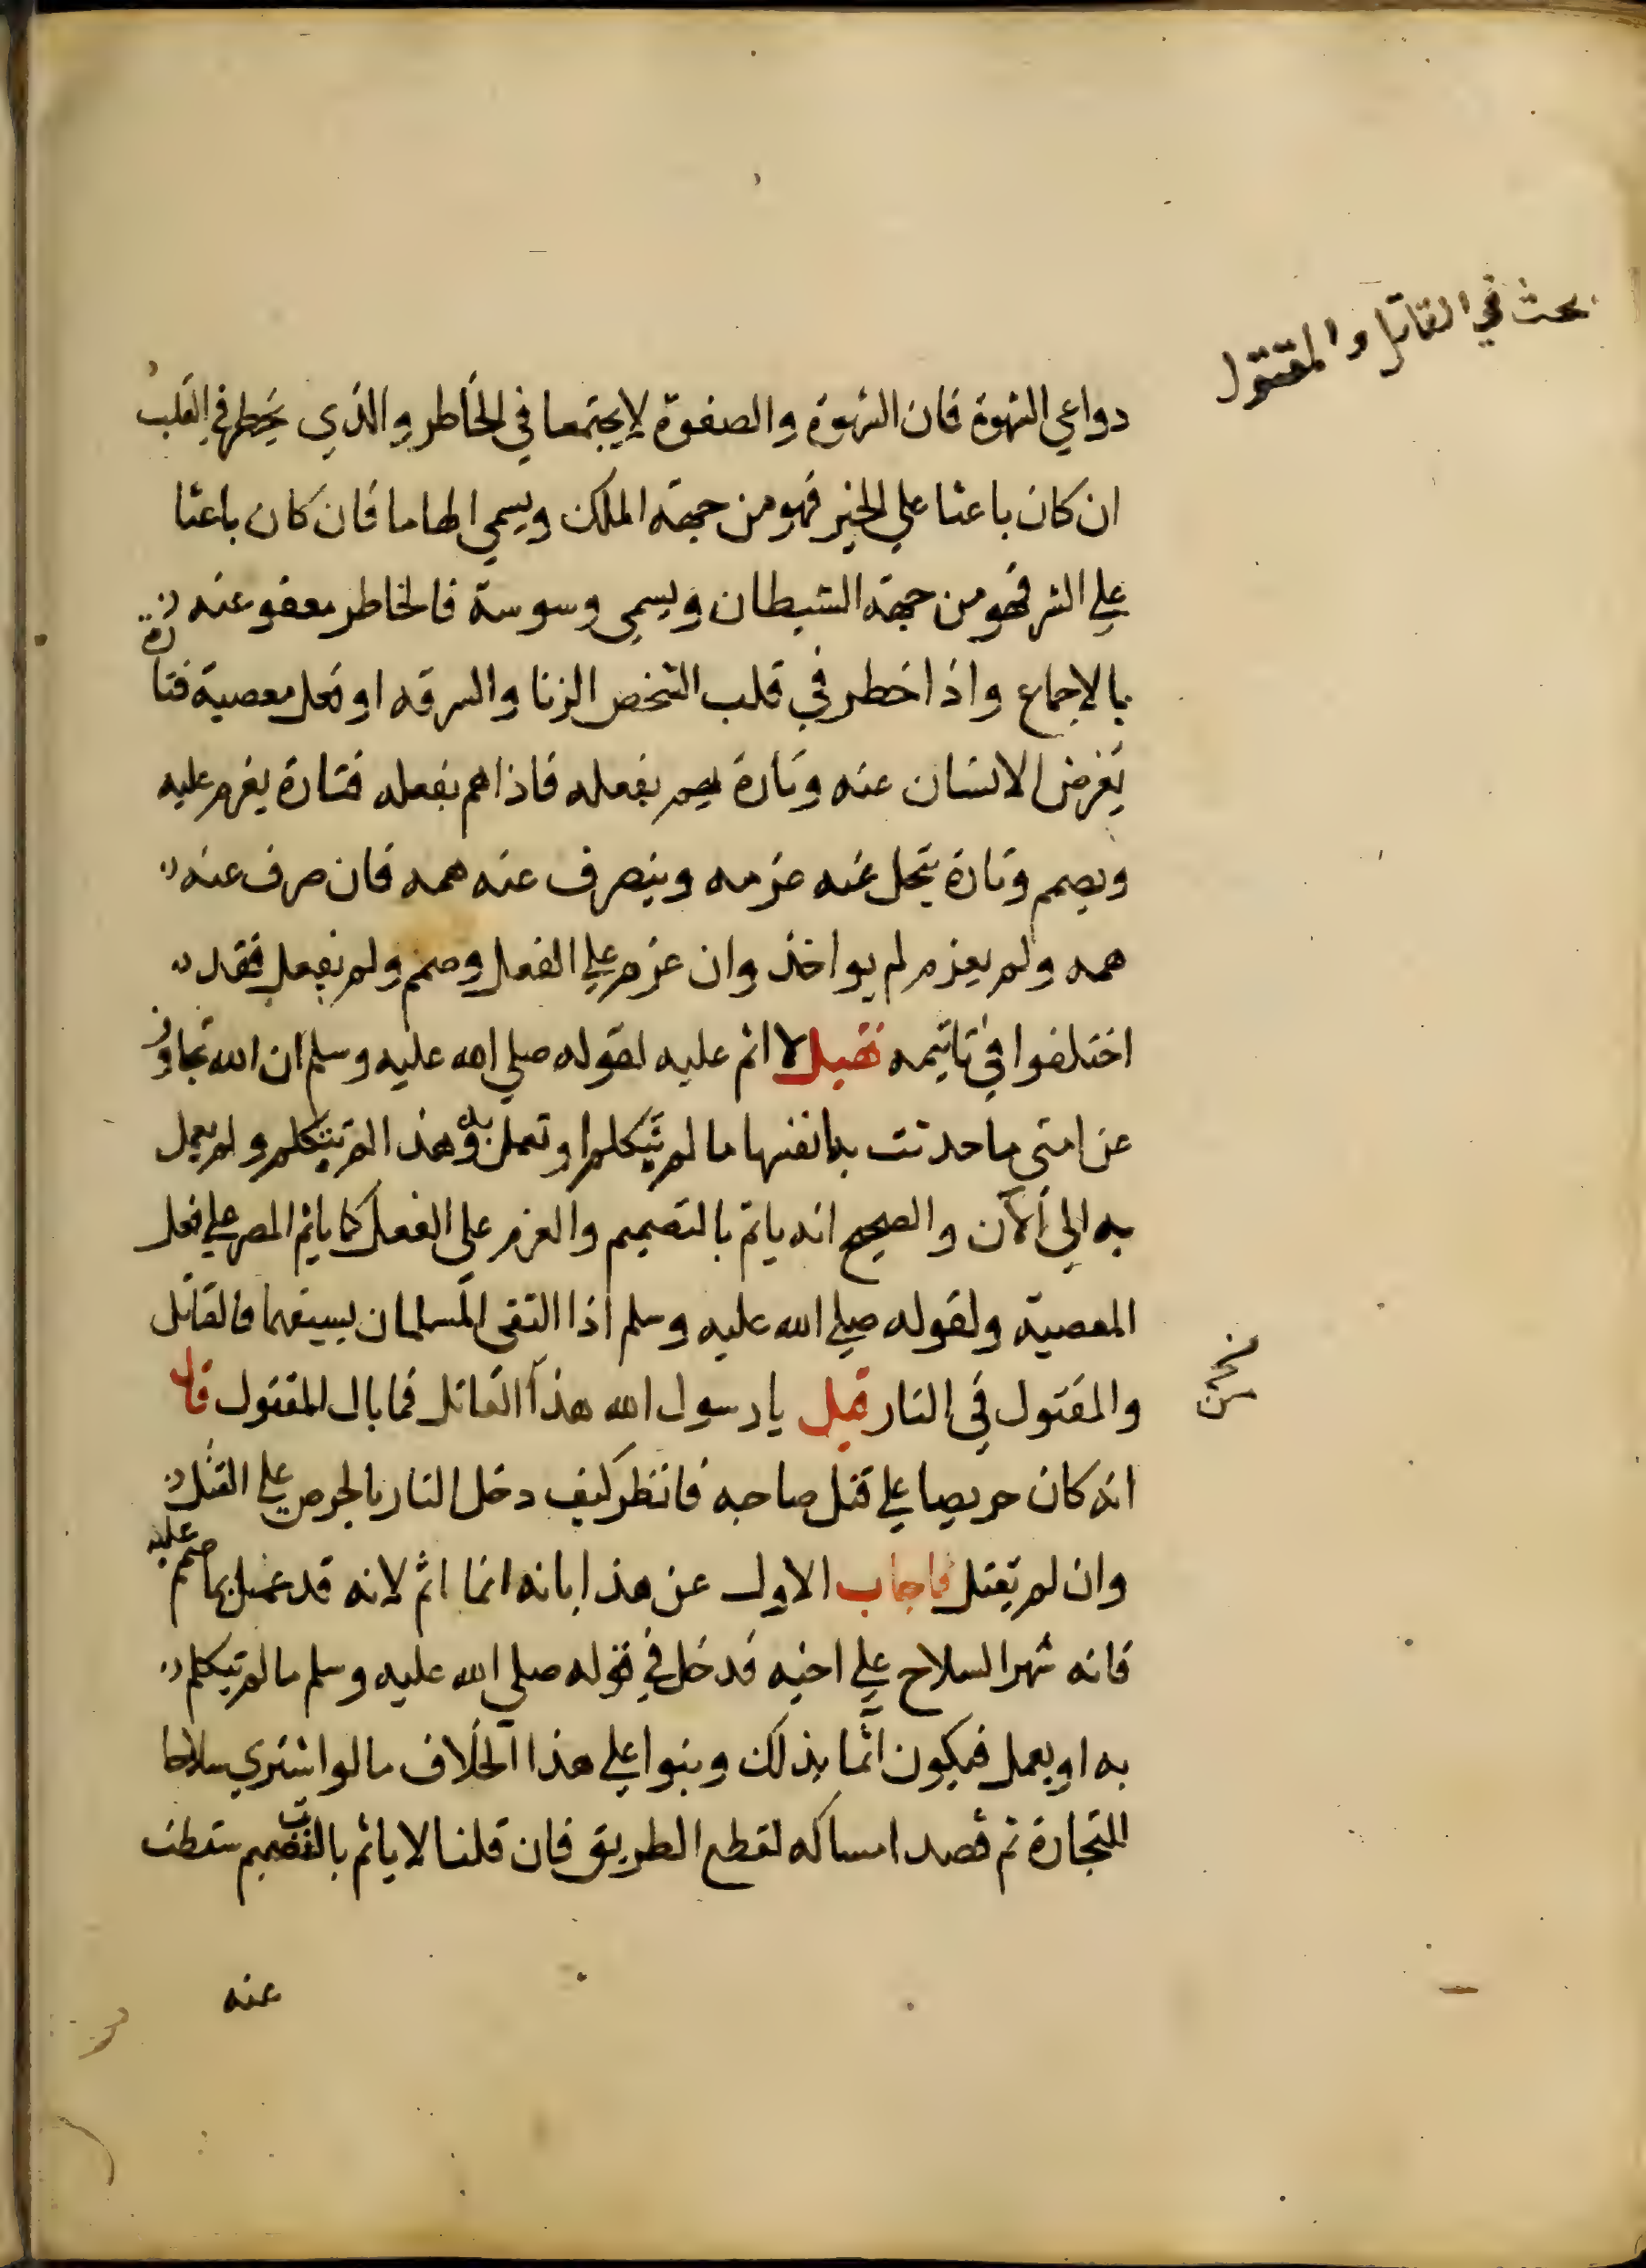 بحث في القاتل والمقتول
دواعي الشهوة فان الشهوة والصفوة لا يجتمعا في الخاطر والذي يخطر في القلب
ان كان باعثا علي الخير فهو من جهة الملك ويسمي الهاما فان كان باعثا
علي الشر فهو من جهة الشيطان ويسمي وسوسة فالخاطر معفو عنه
بالاجماع واذا خطر في قلب الشخص الزنا والسرقه او فعل معصية فتارة
يعرض الانسان عنه وتارة يهم بفعله فاذا هم بفعله فتارة يعزم عليه
ويصمم وتارة ينحل عنه عزمه وينصرف عنه همه فان صرف عنه
همه ولم يعزم لم يواخذ وان عزم علي الفعل وصمم ولم يفعل فقد
اختلفوا في تاثيمه فقيل لا اثم عليه لقوله صلي الله عليه وسلم ان الله تجاوز
عن امتي ما حدثت به انفسها ما لم تتكلم او تعمل به وهذا لم يتكلم ولم يعمل
به الي الآن والصحيح انه ياثم بالتصميم والعزم علي الفعل كما ياثم المصر علي فعل
المعصية ولقوله صلي الله عليه وسلم اذا التقى المسلمان بسيفهما فالقاتل
والمقتول في النار قيل يا رسول الله هذا القاتل فما بال المقتول قال
انه كان حريصا علي قتل صاحبه فانظر كيف دخل النار بالحرص علي القتل
وان لم يقتل فاجاب الاول عن هذا بانه انما اثم لانه قد عمل بما صمم عليه
فانه شهر السلاح علي اخيه فدخل في قوله صلي الله عليه وسلم ما لم يتكلم
به او يعمل فيكون اثما بذلك وبنوا علي هذا الخلاف ما لو اشتري سلاحا
للتجارة ثم قصد امساكه لقطع الطريق فان قلنا لا ياثم بالتصميم سقطت
عنه